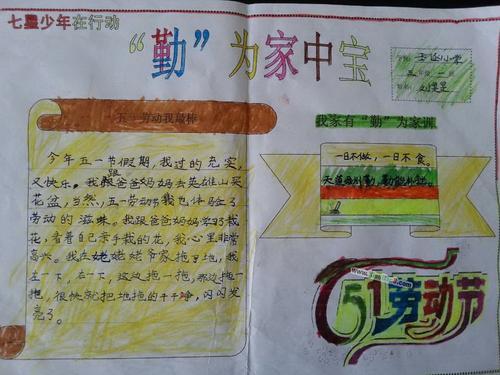 七星少年在行动
“勤”为家中宝
五一劳动我最棒
今年五一节假期，我过的充实，
又快乐。我跟爸爸妈妈去英雄山买
花盆，当然，五一劳动节我也体验了
劳动的滋味，我跟爸爸妈妈学习栽
花，看着自己亲手栽的花，我心里非常
高兴。我在姥姥姥爷家拖了地，我
左一下，右一下，这边拖一拖，那边拖一
拖，很快就把地拖的干干净，闪闪发
亮了。
二班
我家有“勤”为家训
一日不做，一日不食。
天道酬勤，勤能补拙。
51劳动节